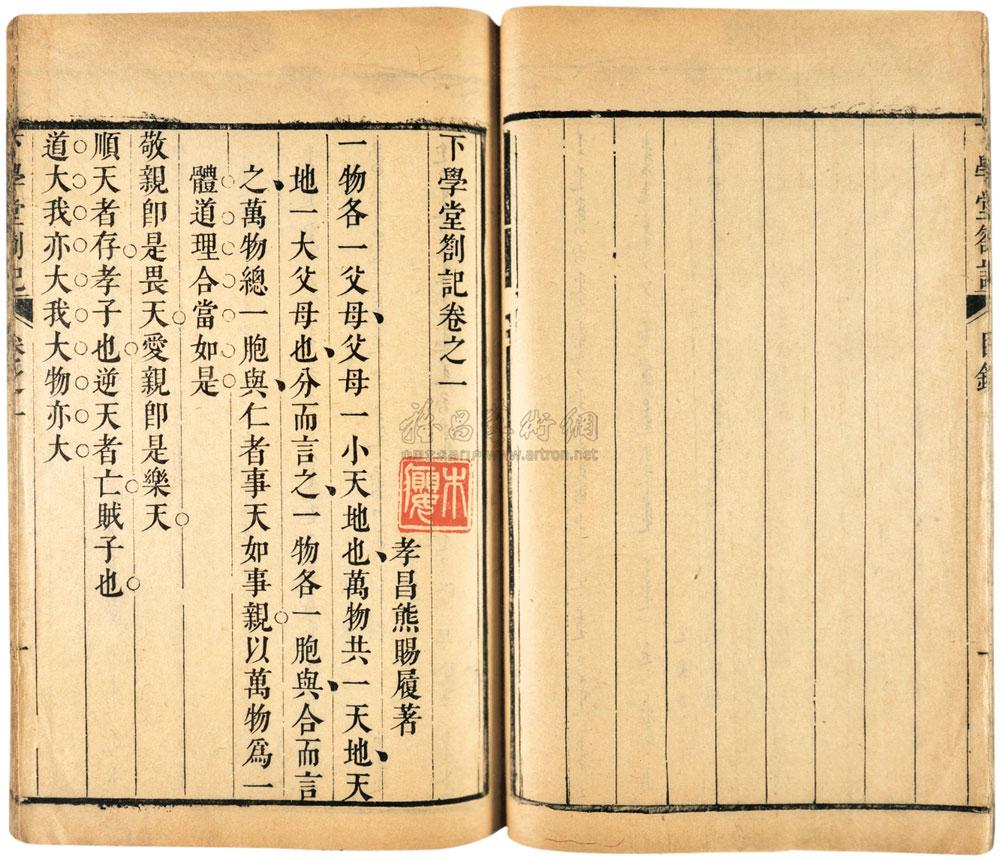 下學堂劄記卷之一
孝昌熊賜履著
一物各一父母父母一小天地也萬物共一天地天
地一大父母也分而言之一物各一胞與合而言
之萬物總一胞與仁者事天如事親以萬物爲一
體道理合當如是
敬親卽是畏天愛親卽是樂天
順天者存孝子也逆天者亡賊子也
道大我亦大我大物亦大
下學堂劄記
卷之一
學堂劄記
目錄
一
www.artron.net